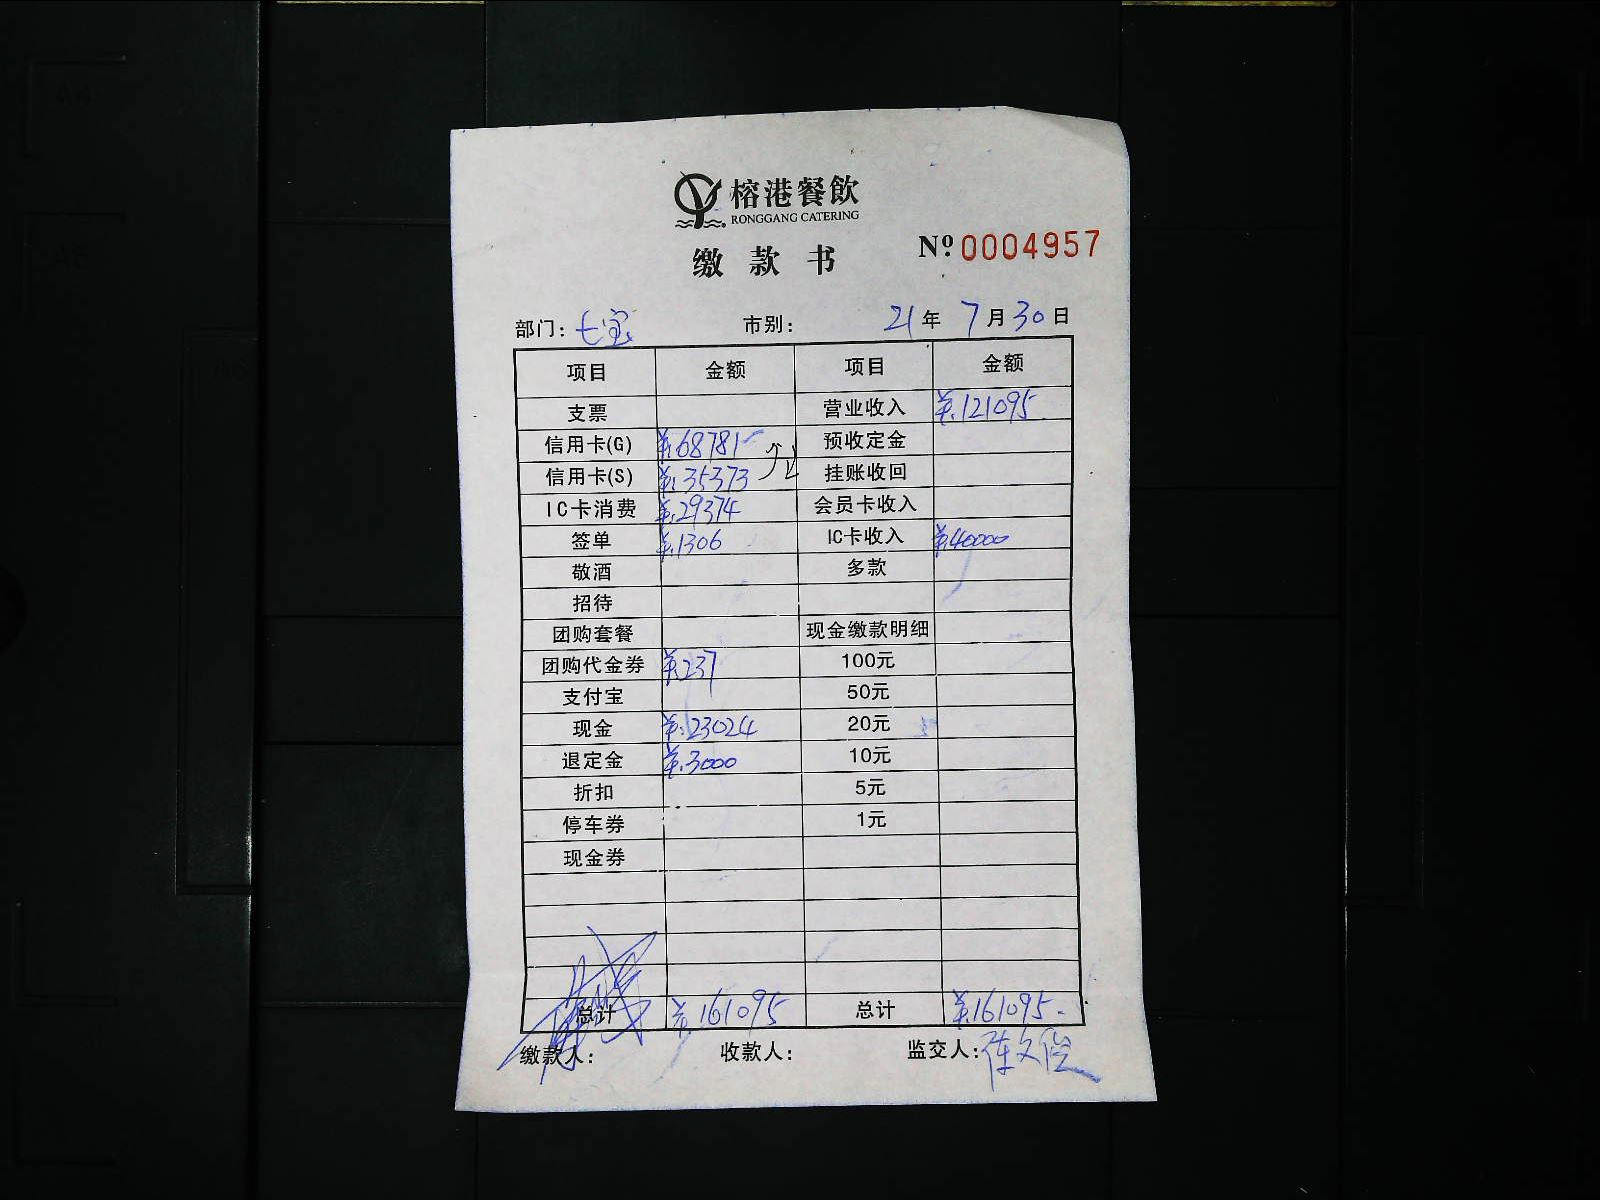 榕港餐飲
RONGGANG CATERING
缴款书 Nº 0004957
部门: 七宝 市别: 21年 7月30日
项目 金额 项目 金额
支票 营业收入 ¥.121095.
信用卡(G) ¥.68781 预收定金
信用卡(S) ¥.35373 挂账收回
IC卡消费 ¥.29374 会员卡收入
签单 ¥.1306 IC卡收入 ¥.40000
敬酒 多款
招待
团购套餐 现金缴款明细
团购代金券 ¥.237 100元
支付宝 50元
现金 ¥.23024 20元
退定金 ¥.3000 10元
折扣 5元
停车券 1元
现金券
总计 ¥.161095 总计 ¥.161095.
缴款人: 收款人: 监交人: 陈文俊